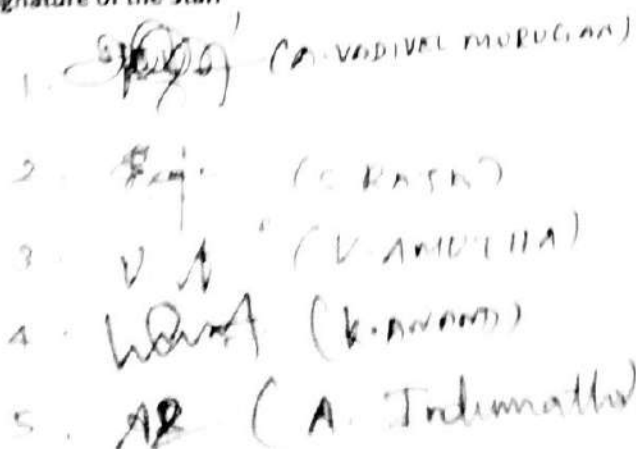 gnature of the Staff
1. (A. VADIVEL MURUGAN)
2. (S. RAJA)
3. (V. AMUTHA)
4. (K. ANAND)
5. (A. Indumathi)